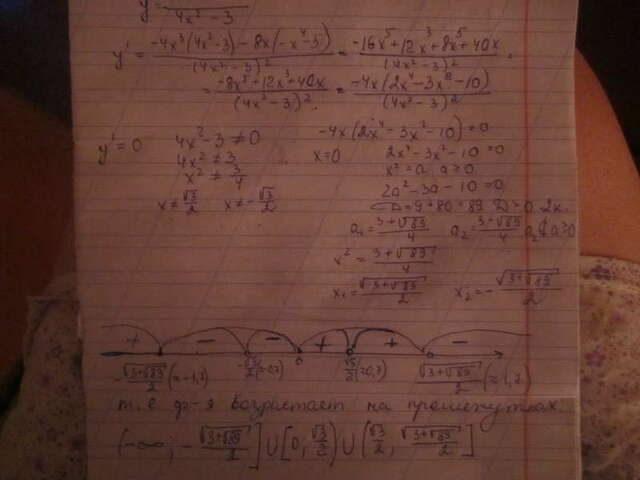 y = ——
4x² - 3
y' = (-4x³(4x²-3) - 8x(-x⁴-5))/(4x²-3)² = (-16x⁵+12x³+8x⁵+40x)/(4x²-3)²
= (-8x⁵+12x³+40x)/(4x²-3)² = (-4x(2x⁴-3x²-10))/(4x²-3)²
y' = 0 4x²-3 ≠ 0 -4x(2x⁴-3x²-10)=0
4x² ≠ 3 x=0 2x⁴-3x²-10=0
x² ≠ 3/4 x²=a, a≥0
x ≠ √3/2 x ≠ -√3/2 2a²-3a-10=0
D=9+80=89 D>0 2к.
a₁ = (3+√89)/4 a₂ = (3+√89)/4 a₂ ∉ a≥0
x² = (3+√89)/4
x₁ = √(3+√89)/2 x₂ = -√(3+√89)/2
+ - - + + -
-√(3+√89)/2 (≈-1,7) -√3/2 (≈-0,7) 0 √3/2 (≈0,7) √(3+√89)/2 (≈1,7)
т.е ф-я возрастает на промежутках:
(-∞; -√(3+√89)/2] ∪ [0, √3/2) ∪ (√3/2, √(3+√89)/2]